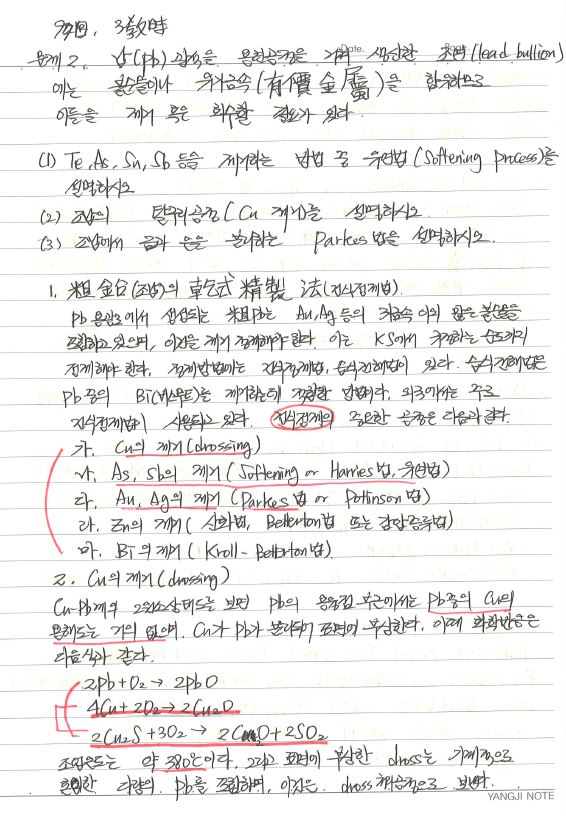 97回. 3教時
문제 2. 납(pb) 광석을 용련공정을 거쳐 생산한 조연(lead bullion)
Date.
에는 불순물이나 유가금속(有價金屬)을 함유하므로
이들을 제거 혹은 회수할 필요가 있다.
(1) Te, As, Sn, Sb 등을 제거하는 방법 중 유연법(Softening process)를
설명하시오
(2) 조납의 탈구리공정(Cu 제거)를 설명하시오.
(3) 조납에서 금과 은을 분리하는 Parkes법을 설명하시오.
1. 粗鉛(조납)의 乾式精製法(건식정제법).
Pb 용광로에서 생성되는 粗Pb는 Au, Ag 등의 귀금속 이외 많은 불순물을
포함하고 있으며, 이것을 제거 정제해야 한다. 이는 KS에서 규정하는 순도까지
정제해야 한다. 정제방법에는 건식정제법, 습식전해법이 있다. 습식전해법은
Pb 중의 Bi(비스무트)를 제거하는데 적합한 방법이다. 외국에서는 주로
건식정제법이 사용되고 있다. 건식정제의 중요한 공정은 다음과 같다.
가. Cu의 제거(drossing)
나. As, Sb의 제거(Softening or Harries법, 유연법)
다. Au, Ag의 제거(Parkes법 or Pattinson법)
라. Zn의 제거(산화법, Betterton법 또는 감압증류법)
마. Bi의 제거(Kroll-Betterton법).
2. Cu의 제거(drossing)
Cu-Pb계의 2원소상태도를 보면 Pb의 용융점 부근에서는 Pb중의 Cu의
용해도는 거의 없으며, Cu가 Pb가 분리되어 표면에 부상한다. 이때 화학반응은
다음식과 같다.
2pb + O₂ → 2pbO
4Cu + 2O₂ → 2Cu₂O
2Cu₂S + 3O₂ → 2Cu₂O + 2SO₂
조업온도는 약 330℃이다. 그리고 표면에 부상한 dross는 기계적으로
혼입한 다량의 Pb를 포함하며, 이것은 dross 처리공정으로 보낸다.
YANGJI NOTE